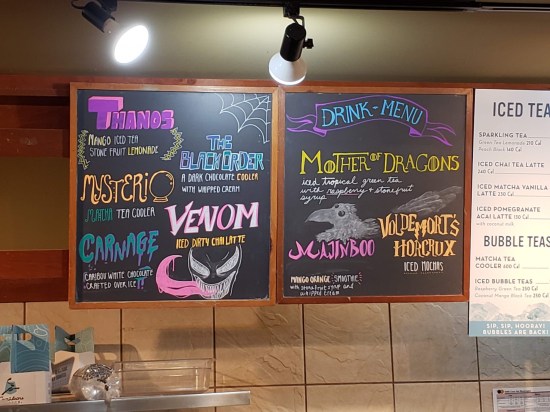 THANOS
MANGO ICED TEA
STONE FRUIT LEMONADE
THE
BLACK ORDER
A DARK CHOCOLATE COOLER
WITH WHIPPED CREAM
MYSTERIO
MATCHA TEA COOLER
VENOM
ICED DIRTY CHAI LATTE
CARNAGE
CARIBOU WHITE CHOCOLATE
CRAFTED OVER ICE!!
DRINK-MENU
MOTHER OF DRAGONS
iced tropical green tea
with raspberry + stonefruit
syrup
MAJIN BOO
MANGO ORANGE SMOOTHIE
with stonefruit syrup and
whipped cream
VOLDEMORT'S
HORCRUX
ICED MOCHAS
ICED TEA
SPARKLING TEA
Green Tea Lemonade 210 Cal
Peach Black
ICED CHAI TEA LATTE
240 Cal
ICED MATCHA VANILLA
LATTE
ICED POMEGRANATE
ACAI LATTE
with coconut milk
BUBBLE TEAS
MATCHA TEA
COOLER 600 Cal
ICED BUBBLE TEAS
Raspberry Green Tea 250 Cal
Coconut Mango Black Tea
SIP, SIP, HOORAY!
BUBBLES ARE BACK!
Caribou